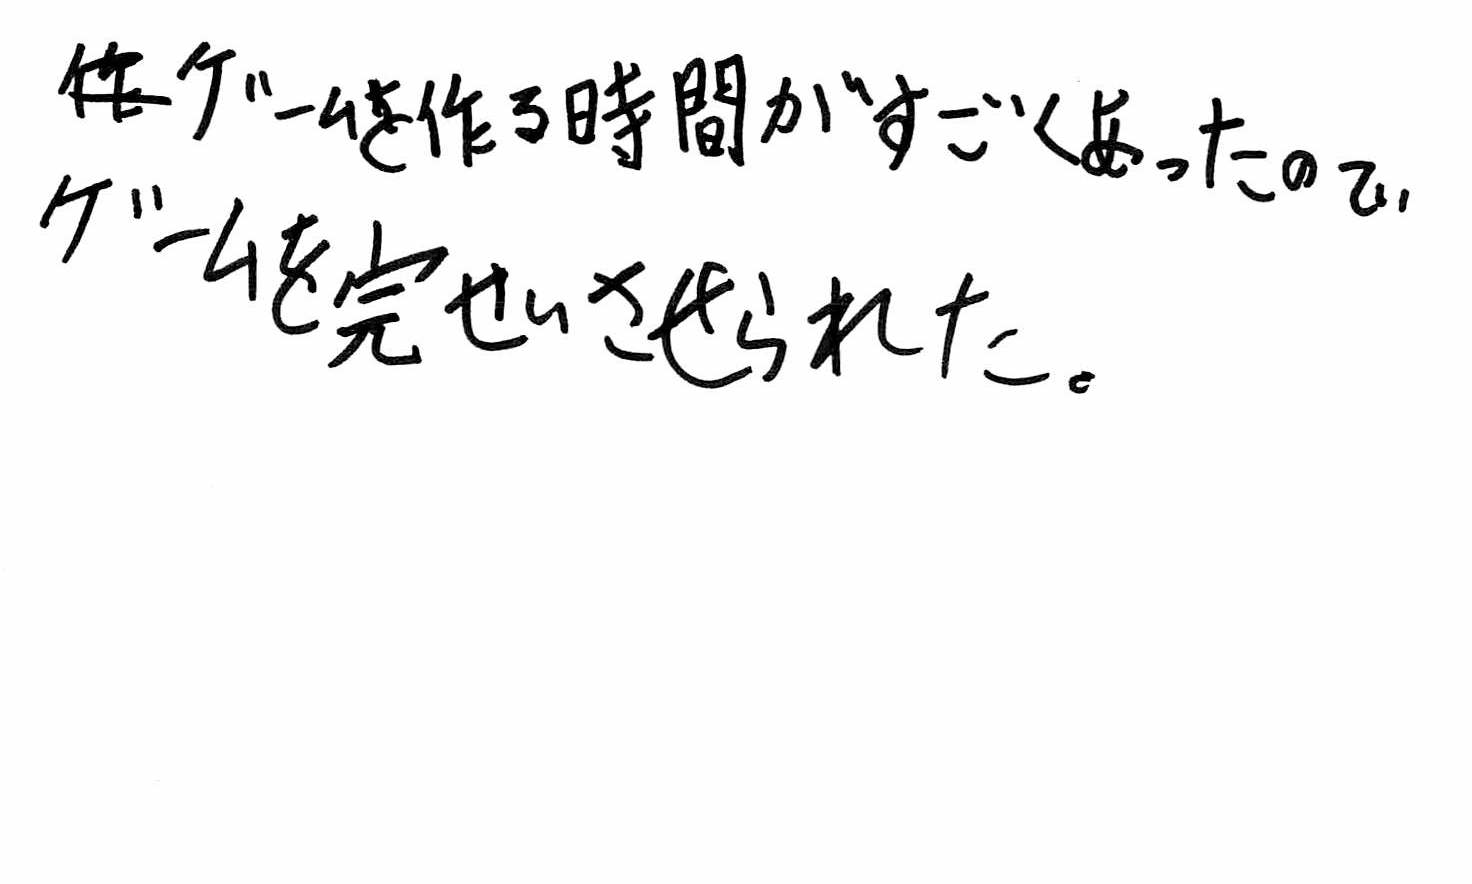 ゲームを作る時間がすごくあったので
ゲームを完せいさせられた。